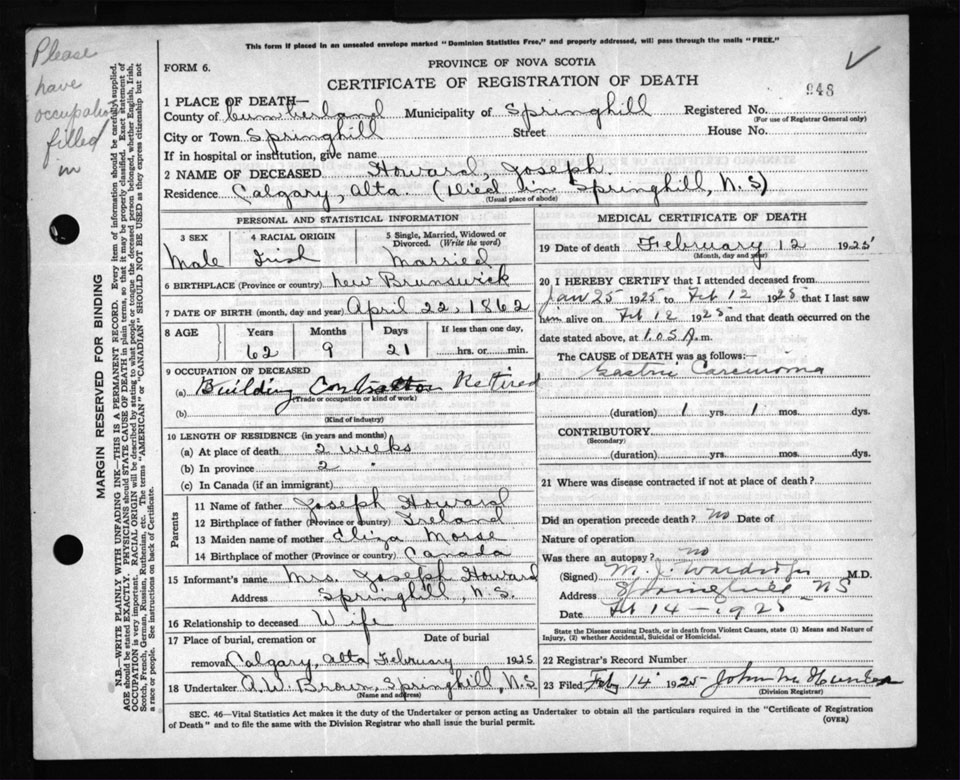 Please
have
occupation
filled
in
MARGIN RESERVED FOR BINDING
N.B.—WRITE PLAINLY WITH UNFADING INK—THIS IS A PERMANENT RECORD. Every item of information should be carefully supplied.
AGE should be stated EXACTLY. PHYSICIANS should STATE CAUSE OF DEATH in plain terms, so that it may be properly classified. Exact statement of
OCCUPATION is very important. RACIAL ORIGIN will be described by stating to what people or tongue the deceased person belonged, whether English, Irish,
Scotch, French, German, Russian, Ruthenian, etc. The terms "AMERICAN" or "CANADIAN" SHOULD NOT BE USED as they express citizenship but not
a race or people. See instructions on back of Certificate.
This form if placed in an unsealed envelope marked "Dominion Statistics Free," and properly addressed, will pass through the mails "FREE."
FORM 6.
PROVINCE OF NOVA SCOTIA
CERTIFICATE OF REGISTRATION OF DEATH
948
1 PLACE OF DEATH—
County of Cumberland Municipality of Springhill Registered No.
(For use of Registrar General only)
City or Town Springhill Street House No.
If in hospital or institution, give name
2 NAME OF DECEASED Howard, Joseph.
Residence Calgary, Alta. (Died in Springhill, N.S)
(Usual place of abode)
PERSONAL AND STATISTICAL INFORMATION
3 SEX 4 RACIAL ORIGIN 5 Single, Married, Widowed or
Divorced. (Write the word)
Male Irish Married
6 BIRTHPLACE (Province or country) New Brunswick
7 DATE OF BIRTH (month, day and year) April 22, 1862
8 AGE Years Months Days If less than one day,
62 9 21 hrs. or min.
9 OCCUPATION OF DECEASED
(a) Building Contractor Retired
(Trade or occupation or kind of work)
(b)
(Kind of industry)
10 LENGTH OF RESIDENCE (in years and months)
(a) At place of death 2 weeks
(b) In province 2 "
(c) In Canada (if an immigrant)
Parents
11 Name of father Joseph Howard
12 Birthplace of father (Province or country) Ireland
13 Maiden name of mother Eliza Morse
14 Birthplace of mother (Province or country) Canada
15 Informant's name Mrs. Joseph Howard
Address Springhill, N.S.
16 Relationship to deceased Wife
17 Place of burial, cremation or Date of burial
removal Calgary, Alta February 1925
18 Undertaker A.W. Brown, Springhill, N.S
(Name and address)
MEDICAL CERTIFICATE OF DEATH
19 Date of death February 12 1925
(Month, day and year)
20 I HEREBY CERTIFY that I attended deceased from
Jan 25 1925 to Feb 12 1925 that I last saw
him alive on Feb 12 1925 and that death occurred on the
date stated above, at 1.05 A. m.
The CAUSE OF DEATH was as follows:—
Gastric Carcinoma
(duration) 1 yrs. 1 mos. dys.
CONTRIBUTORY
(Secondary)
(duration) yrs. mos. dys.
21 Where was disease contracted if not at place of death?
Did an operation precede death? No Date of
Nature of operation
Was there an autopsy? no
(Signed) M. J. Wardrope M.D.
Address Springhill NS
Date Feb 14 – 1925
State the Disease causing Death, or in death from Violent Causes, state (1) Means and Nature of
Injury, (2) whether Accidental, Suicidal or Homicidal.
22 Registrar's Record Number
23 Filed Feby 14 1925 John
(Division Registrar)
SEC. 46—Vital Statistics Act makes it the duty of the Undertaker or person acting as Undertaker to obtain all the particulars required in the "Certificate of Registration
of Death" and to file the same with the Division Registrar who shall issue the burial permit.
(OVER)